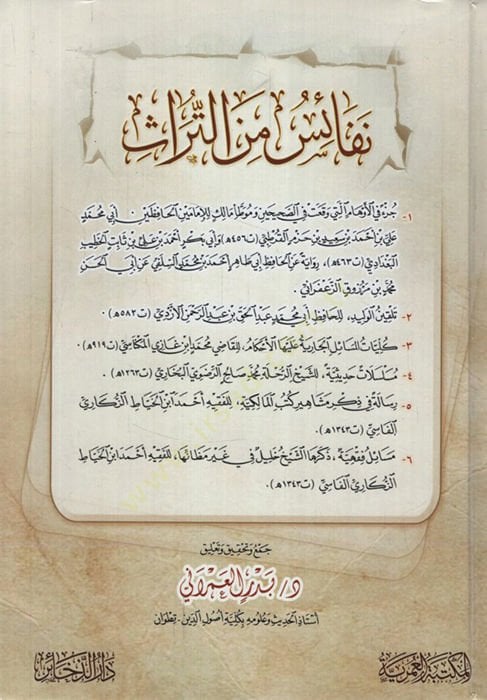 نفائس من التراث
١- جزء في الأوهام التي وقعت في الصحيحين وموطأ مالك للإمامين الحافظين : أبي محمد
علي بن أحمد بن سعيد بن حزم القرطبي (ت٤٥٦هـ) وأبي بكر أحمد بن علي بن ثابت الخطيب
البغدادي (ت٤٦٣هـ)، رواية عن الحافظ أبي طاهر أحمد بن محمد السلفي عن أبي الحسن
محمد بن مرزوق الزعفراني .
٢- تلقين الوليد، للحافظ أبي محمد عبد الحق بن عبد الرحمن الأزدي (ت٥٨٢هـ) .
٣- كليات المسائل الجارية عليها الأحكام، للقاضي محمد ابن غازي المكناسي (ت٩١٩هـ).
٤- مسلسلات حديثية، للشيخ الرحلة محمد صالح الرضوي البخاري (ت١٢٦٣هـ) .
٥- رسالة في ذكر مشاهير كتب المالكية، للفقيه أحمد ابن الخياط الزكاري
الفاسي (ت١٣٤٣هـ).
٦- مسائل فقهية، ذكرها الشيخ خليل في غير مظانها، للفقيه أحمد ابن الخياط
الزكاري الفاسي (ت١٣٤٣هـ).
جمع وتحقيق وتعليق
د/ بدر العمراني
أستاذ الحديث وعلومه بكلية أصول الدين - تطوان
المكتبة العمرية
دار الذخائر